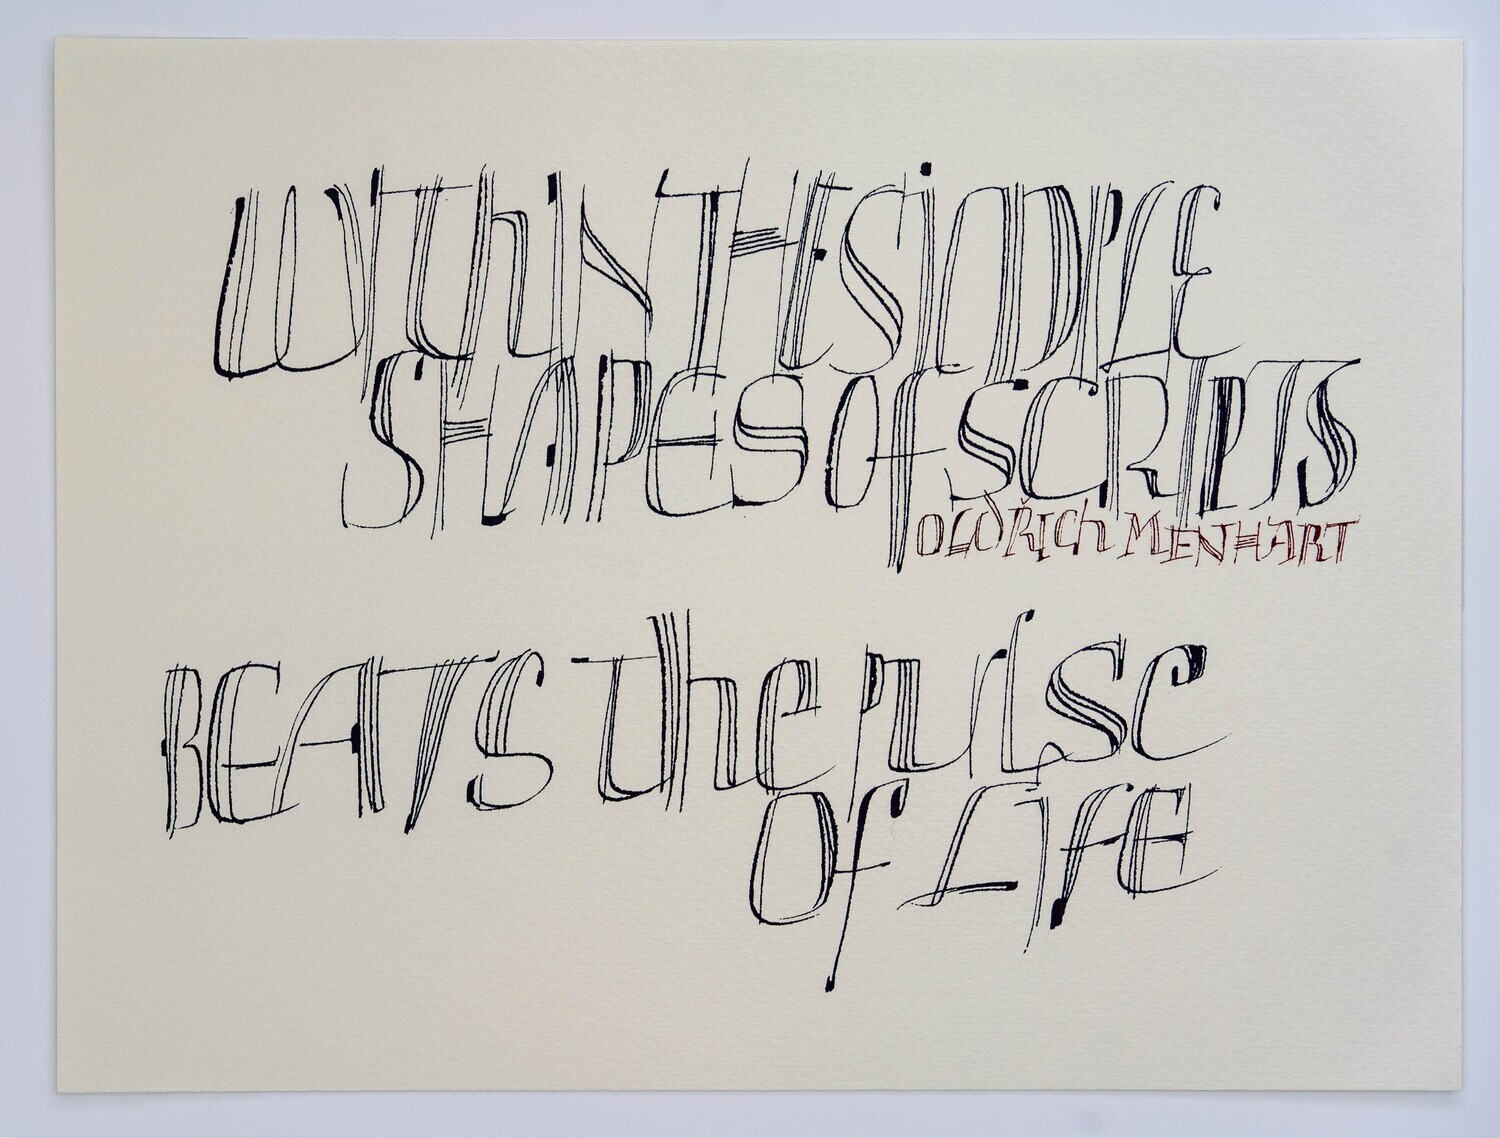 WITHIN THE SIMPLE
SHAPES OF SCRIPTS
OLDŘICH MENHART
BEATS the pulse
OF LIFE